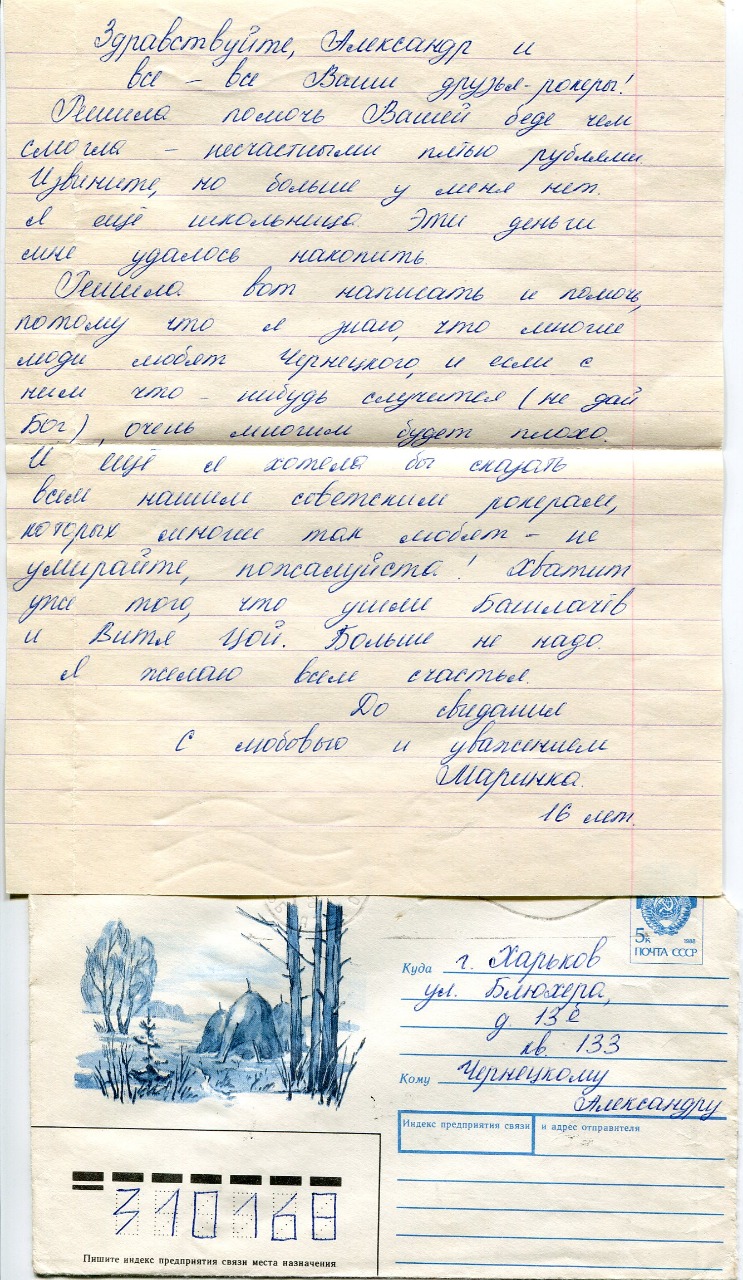 Здравствуйте, Александр и
все - все Ваши друзья-рокеры!
Решила помочь Вашей беде чем
смогла - несчастными пятью рублями.
Извините, но больше у меня нет.
Я ещё школьница. Эти деньги
мне удалось накопить.
Решила вот написать и помочь,
потому что я знаю, что многие
люди любят Чернецкого, и если с
ним что-нибудь случится (не дай
Бог), очень многим будет плохо.
И ещё я хотела бы сказать
всем нашим советским рокерам,
которых многие так любят - не
умирайте, пожалуйста! Хватит
уже того, что ушли Башлачёв
и Витя Цой. Больше не надо.
Я желаю всем счастья.
До свидания
С любовью и уважением
Маринка.
16 лет.
5к 1988
ПОЧТА СССР
Куда г. Харьков
ул. Блюхера,
д. 13
кв. 133
Кому Чернецкому
Александру
Индекс предприятия связи и адрес отправителя
310168
Пишите индекс предприятия связи места назначения